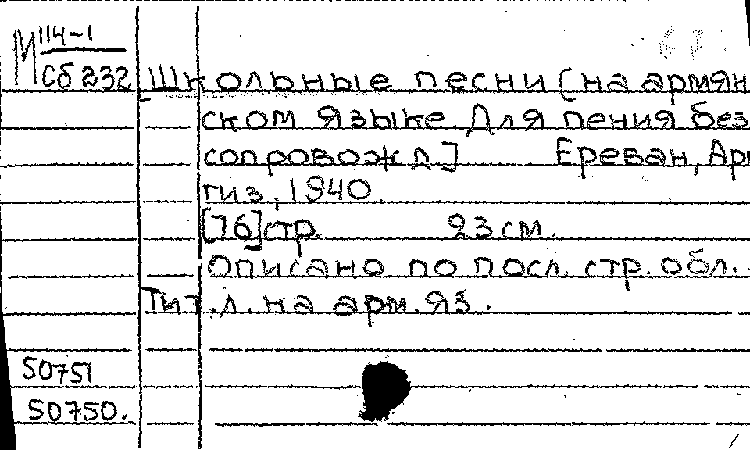 М 114-1
Сб 232 Школьные песни [на армян
ском языке Для пения без
сопровожд.] Ереван, Арм
гиз, 1940.
[76] стр. 23 см.
Описано по посл. стр. обл.
Тит. л. на арм. яз.
50751
50750.